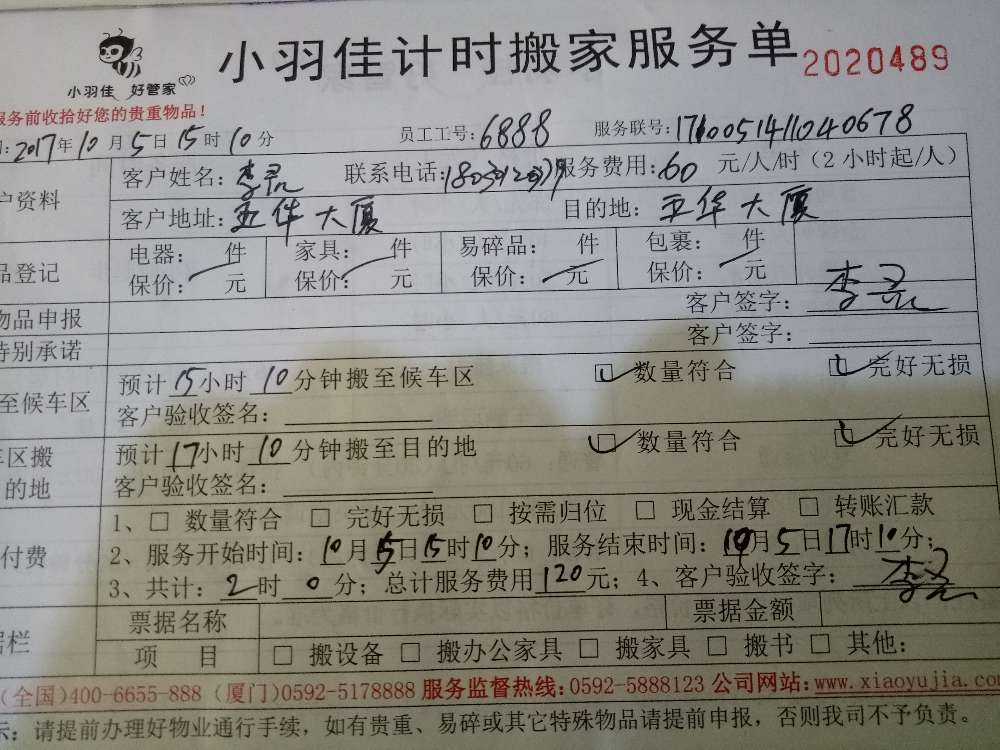 小羽佳计时搬家服务单 2020489
小羽佳 好管家
服务前收拾好您的贵重物品！
2017年10月5日15时10分 员工工号：6888 服务联号：1710051411040678
户资料 客户姓名：李 联系电话： 服务费用：60 元/人/时（2小时起/人）
客户地址：五华大厦 目的地：五华大厦
品登记 电器： 件 家具： 件 易碎品： 件 包裹： 件
保价： 元 保价： 元 保价： 元 保价： 元
物品申报 客户签字：李
特别承诺 客户签字：
至候车区 预计15小时10分钟搬至候车区 数量符合 完好无损
客户验收签名：
车区搬 预计17小时10分钟搬至目的地 数量符合 完好无损
的地 客户验收签名：
1、□ 数量符合 □ 完好无损 □ 按需归位 □ 现金结算 □ 转账汇款
付费 2、服务开始时间：10月5日15时10分；服务结束时间：10月5日17时10分；
3、共计：2时0分；总计服务费用120元；4、客户验收签字：李
据栏 票据名称 票据金额
项 目 □ 搬设备 □ 搬办公家具 □ 搬家具 □ 搬书 □ 其他：
(全国)400-6655-888 (厦门)0592-5178888 服务监督热线：0592-5888123 公司网站：www.xiaoyujia.com
示：请提前办理好物业通行手续，如有贵重、易碎或其它特殊物品请提前申报，否则我司不予负责。